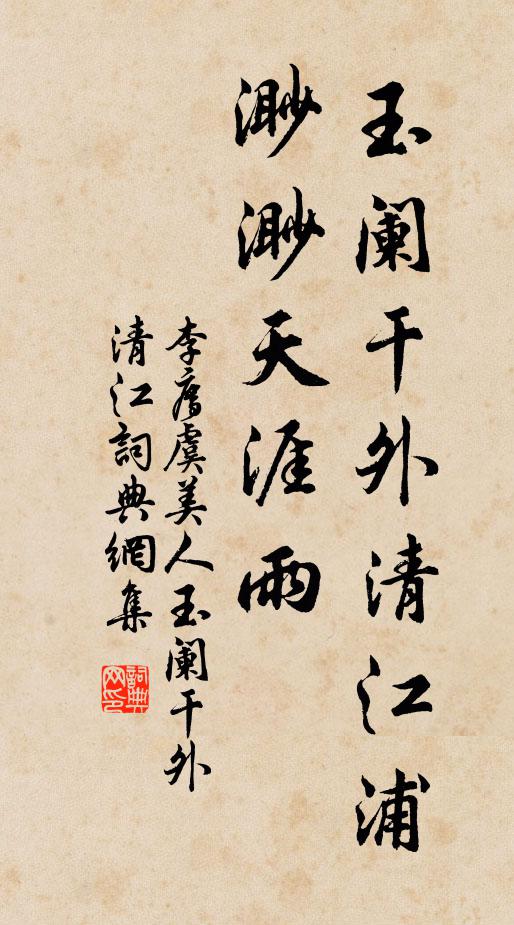 玉阑干外清江浦
渺渺天涯雨
李廌虞美人玉阑干外
清江詞典網集
詞典网印